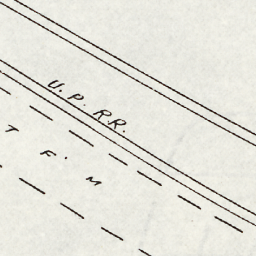 U.P. RR.
T F. M